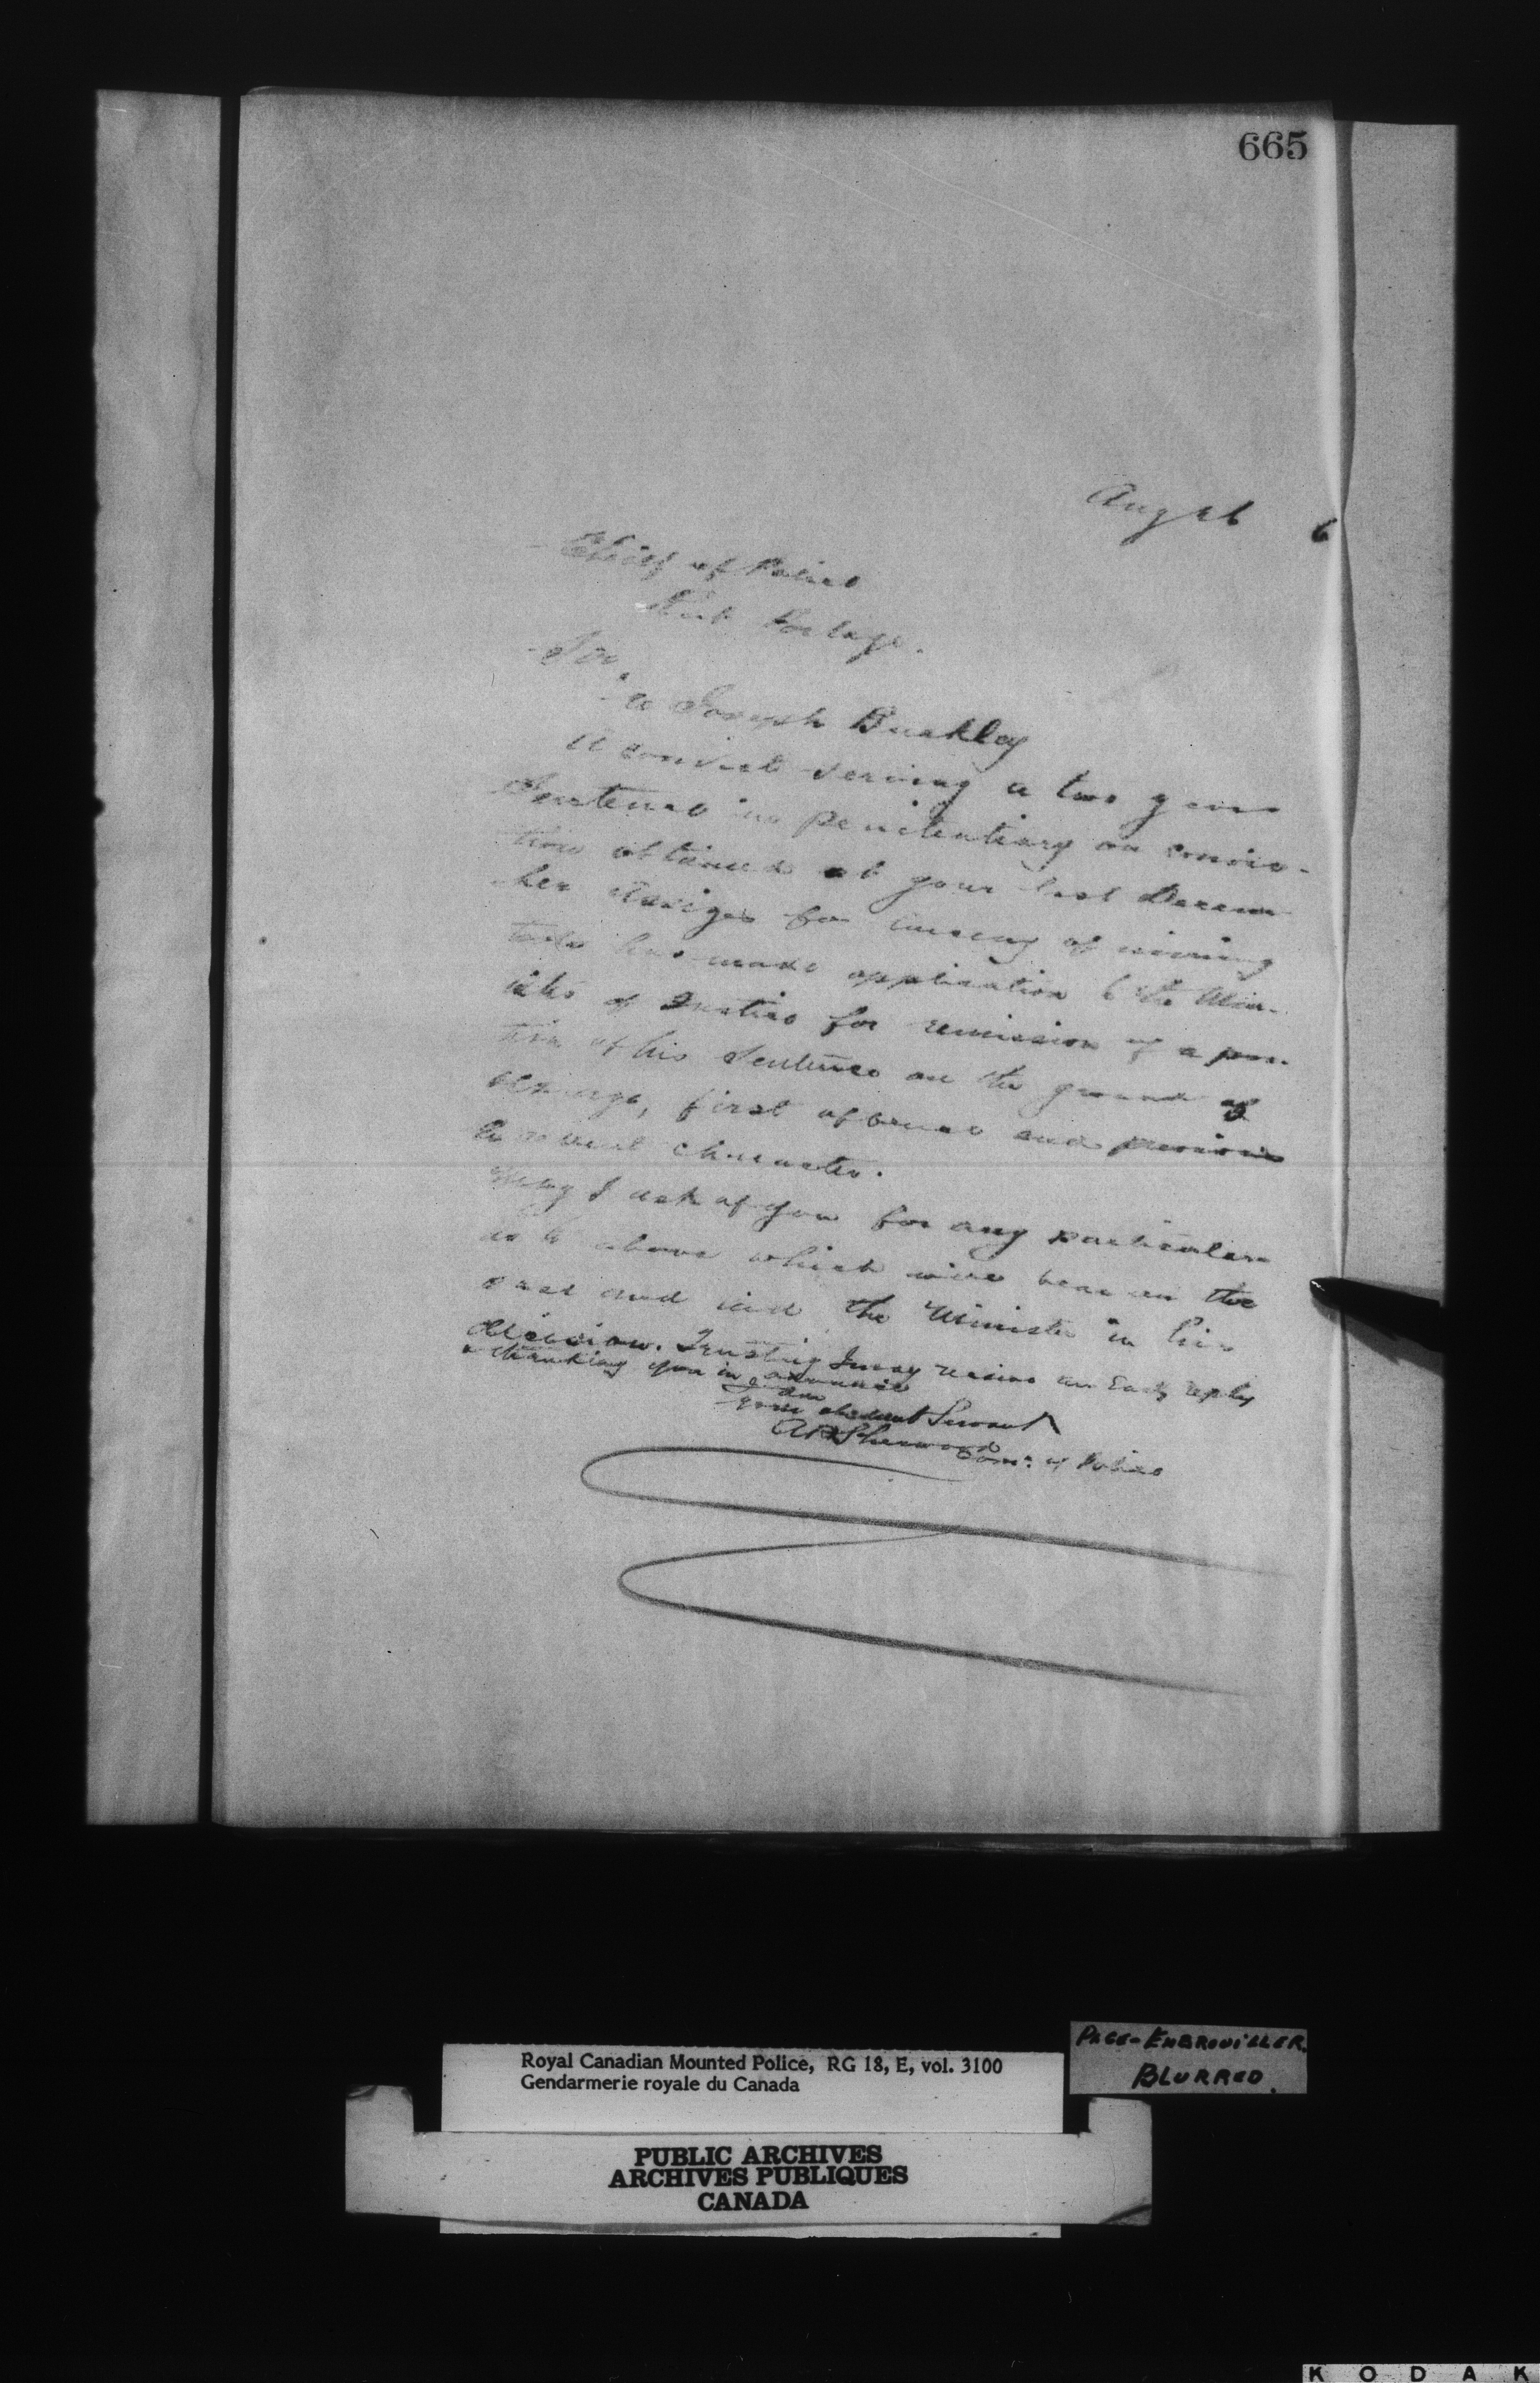 665
Aug 6
Chief of Police
Rat Portage.
Sir,
re Joseph Buckley
A convict serving a two years
Sentence in penitentiary on convic-
tion obtained at your last Decem-
ber Assizes for of
has made application to the Min-
ister of Justice for remission of a por-
tion of his sentence on the ground of
first offence and previous
character.
May I ask of you for any particulars
as to above which will bear on the
case and aid the Minister in his
decision. Trusting I may receive an Early reply
& thanking you in advance
I am
your obedient Servant
A P Sherwood
Com: of Police
Royal Canadian Mounted Police, RG 18, E, vol. 3100
Gendarmerie royale du Canada
PAGE-EMBROUILLER.
BLURRED.
PUBLIC ARCHIVES
ARCHIVES PUBLIQUES
CANADA
KODAK